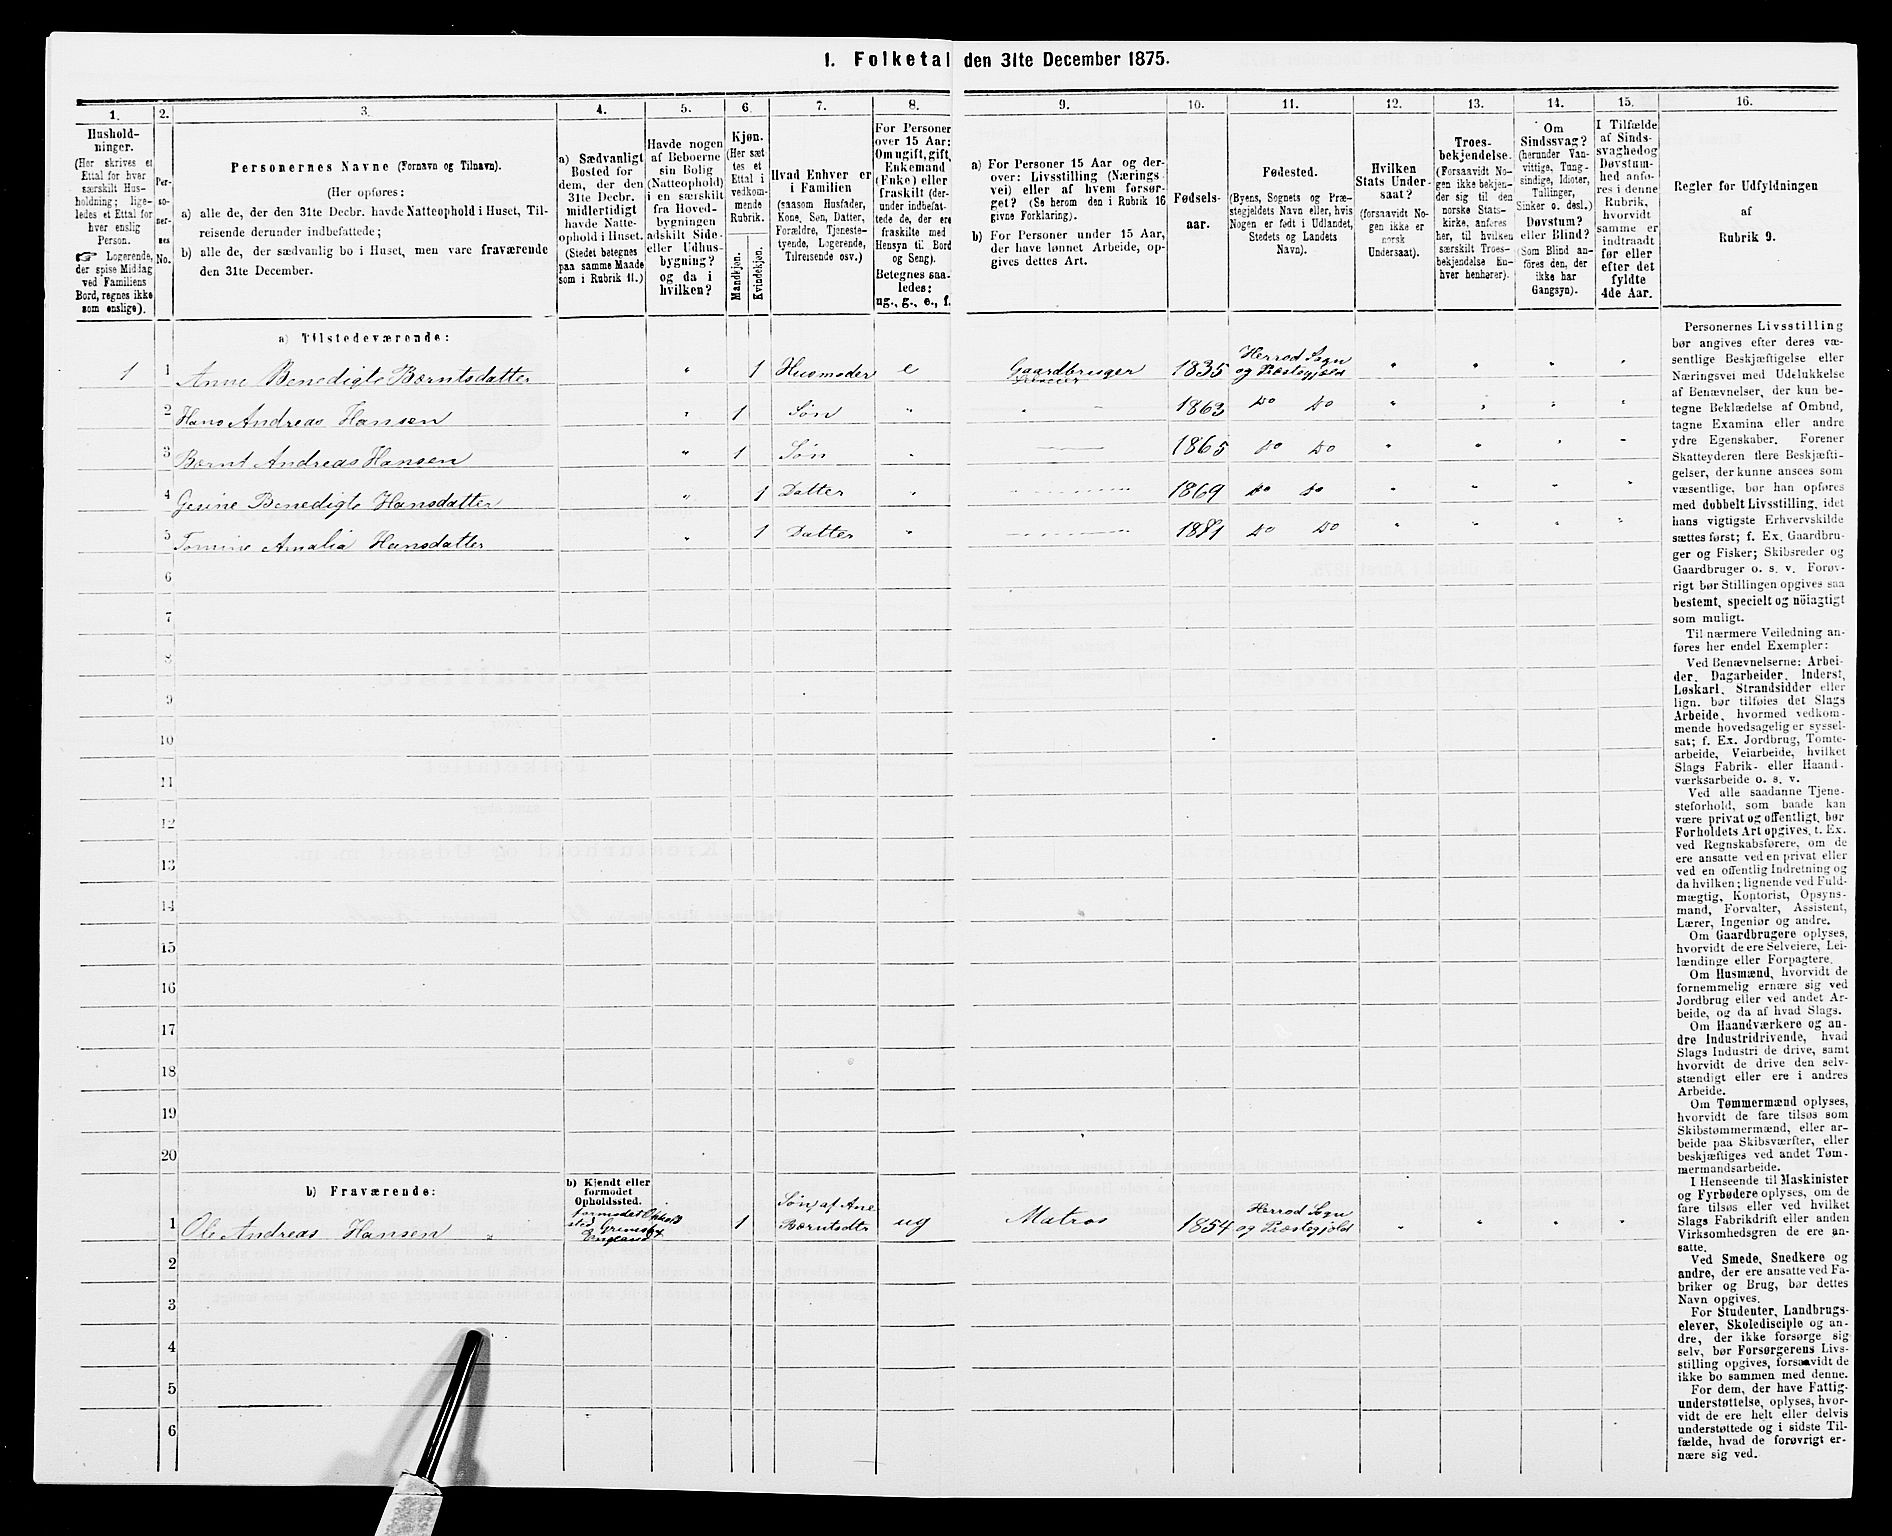 1. Folketal den 31te December 1875.
1. 2. 3. 4. 5. 6. 7. 8. 9. 10. 11. 12. 13. 14. 15. 16.
Hushold-
ninger.
(Her skrives et
Ettal for hver
særskilt Hus-
holdning; lige-
ledes et Ettal for
hver enslig
Person.
☞ Logerende,
der spise Middag
ved Familiens
Bord, regnes ikke
som enslige).
Per-
so-
ner-
nes
No.
Personernes Navne (Fornavn og Tilnavn).
(Her opføres:
a) alle de, der den 31te Decbr. havde Natteophold i Huset, Til-
reisende derunder indbefattede;
b) alle de, der sædvanlig bo i Huset, men vare fraværende
den 31te December.
a) Sædvanligt
Bosted for
dem, der den
31te Decbr.
midlertidigt
havde Natte-
ophold i Huset.
(Stedet betegnes
paa samme Maade
som i Rubrik 11.)
Havde nogen
af Beboerne
sin Bolig
(Natteophold)
i en særskilt
fra Hoved-
bygningen
adskilt Side-
eller Udhus-
bygning?
og da i
hvilken?
Kjøn.
(Her sæt-
tes et
Ettal i
vedkom-
mende
Rubrik.
Mandkjøn.
Kvindekjøn.
Hvad Enhver er
i Familien
(saasom Husfader,
Kone, Søn, Datter,
Forældre, Tjeneste-
tyende, Logerende,
Tilreisende osv.)
For Personer
over 15 Aar:
Om ugift, gift,
Enkemand
(Enke) eller
fraskilt (der-
under indbefat-
tede de, der ere
fraskilte med
Hensyn til Bord
og Seng).
Betegnes saa-
ledes:
ug., g., e., f.
a) For Personer 15 Aar og der-
over: Livsstilling (Nærings-
vei) eller af hvem forsør-
get? (Se herom den i Rubrik 16
givne Forklaring).
b) For Personer under 15 Aar,
der have lønnet Arbeide, op-
gives dettes Art.
Fødsels-
aar.
Fødested.
(Byens, Sognets og Præ-
stegjeldets Navn eller, hvis
Nogen er født i Udlandet,
Stedets og Landets
Navn).
Hvilken
Stats Under-
saat?
(forsaavidt No-
gen ikke er
norsk
Undersaat).
Troes-
bekjendelse.
(Forsaavidt No-
gen ikke bekjen-
der sig til den
norske Stats-
kirke, anføres
her, til hvilken
særskilt Troes-
bekjendelse En-
hver henhører).
Om
Sindssvag?
(herunder Van-
vittige, Tung-
sindige, Idioter,
Tullinger,
Sinker o. desl.)
Døvstum?
eller Blind?
(Som Blind an-
føres den, der
ikke har
Gangsyn).
I Tilfælde
af Sinds-
svaghed og
Døvstum-
hed anfø-
res i denne
Rubrik,
hvorvidt
samme er
indtraadt
før eller
efter det
fyldte
4de Aar.
Regler for Udfyldningen
af
Rubrik 9.
a) Tilstedeværende:
1 1 Anne Benedigte Bærntsdatter " 1 Husmoder e Gaardbruger 1835 Herrod Sogn og Præstegjeld " " " "
2 Hans Andreas Hansen " 1 Søn " " 1863 do do " " " "
3 Bærnt Andreas Hansen " 1 Søn " 1865 do do " " " "
4 Gesine Benedigte Hansdatter " 1 Datter " " 1869 do do " " " "
5 Tomine Amalia Hansdatter " 1 Datter " " 1871 do do " " " "
6
7
8
9
10
11
12
13
14
15
16
17
18
19
20
b) Fraværende:
b) Kjendt eller
formodet
Opholdssted.
1 Ole Andreas Hansen " formodet Opholdssted Grimsby England 1 Søn af Ane Bærntsdtr ug Matros 1854 Herrod Sogn og Præstegjeld " " " "
2
3
4
5
6
Personernes Livsstilling
bør angives efter deres væ-
sentlige Beskjæftigelse eller
Næringsvei med Udelukkelse
af Benævnelser, der kun be-
tegne Beklædelse af Ombud,
tagne Examina eller andre
ydre Egenskaber. Forener
Skatteyderen flere Beskjæfti-
gelser, der kunne ansees som
væsentlige, bør han opføres
med dobbelt Livsstilling, idet
hans vigtigste Erhvervskilde
sættes først; f. Ex. Gaardbru-
ger og Fisker; Skibsreder og
Gaardbruger o. s. v. Forøv-
rigt bør Stillingen opgives saa
bestemt, specielt og nöiagtigt
som muligt.
Til nærmere Veiledning an-
føres her endel Exempler:
Ved Benævnelserne: Arbei-
der, Dagarbeider, Inderst,
Løskarl, Strandsidder eller
lign. bør tilføies det Slags
Arbeide, hvormed vedkom-
mende hovedsagelig er syssel-
sat; f. Ex. Jordbrug, Tomte-
arbeide, Veiarbeide, hvilket
Slags Fabrik- eller Haand-
værksarbeide o. s. v.
Ved alle saadanne Tjene-
steforhold, som baade kan
være privat og offentligt, bør
Forholdets Art opgives, t. Ex.
ved Regnskabsførere, om de
ere ansatte ved en privat eller
ved en offentlig Indretning og
da hvilken; lignende ved Fuld-
mægtig, Kontorist, Opsyns-
mand, Forvalter, Assistent,
Lærer, Ingeniør og andre.
Om Gaardbrugere oplyses,
hvorvidt de ere Selveiere, Lei-
lændinge eller Forpagtere.
Om Husmænd, hvorvidt de
fornemmelig ernære sig ved
Jordbrug eller ved andet Ar-
beide, og da af hvad Slags.
Om Haandværkere og an-
dre Industridrivende, hvad
Slags Industri de drive, samt
hvorvidt de drive den selv-
stændigt eller ere i andres
Arbeide.
Om Tømmermænd oplyses,
hvorvidt de fare tilsøs som
Skibstømmermænd, eller ar-
beide paa Skibsværfter, eller
beskjæftiges ved andet Tøm-
mermandsarbeide.
I Henseende til Maskinister
og Fyrbødere oplyses, om de
fare tilsøs eller ved hvilket
Slags Fabrikdrift eller anden
Virksomhedsgren de ere an-
satte.
Ved Smede, Snedkere og
andre, der ere ansatte ved Fa-
briker og Brug, bør dettes
Navn opgives.
For Studenter, Landbrugs-
elever, Skoledisciple og an-
dre, der ikke forsørge sig
selv, bør Forsørgerens Livs-
stilling opgives, forsaavidt de
ikke bo sammen med denne.
For dem, der have Fattig-
understøttelse, oplyses, hvor-
vidt de ere helt eller delvis
understøttede og i sidste Til-
fælde, hvad de forøvrigt er-
nære sig ved.